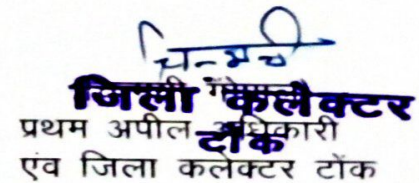 चिन्मयी
जिला कलेक्टर
टोंक
प्रथम अपील अधिकारी
एवं जिला कलेक्टर टोंक